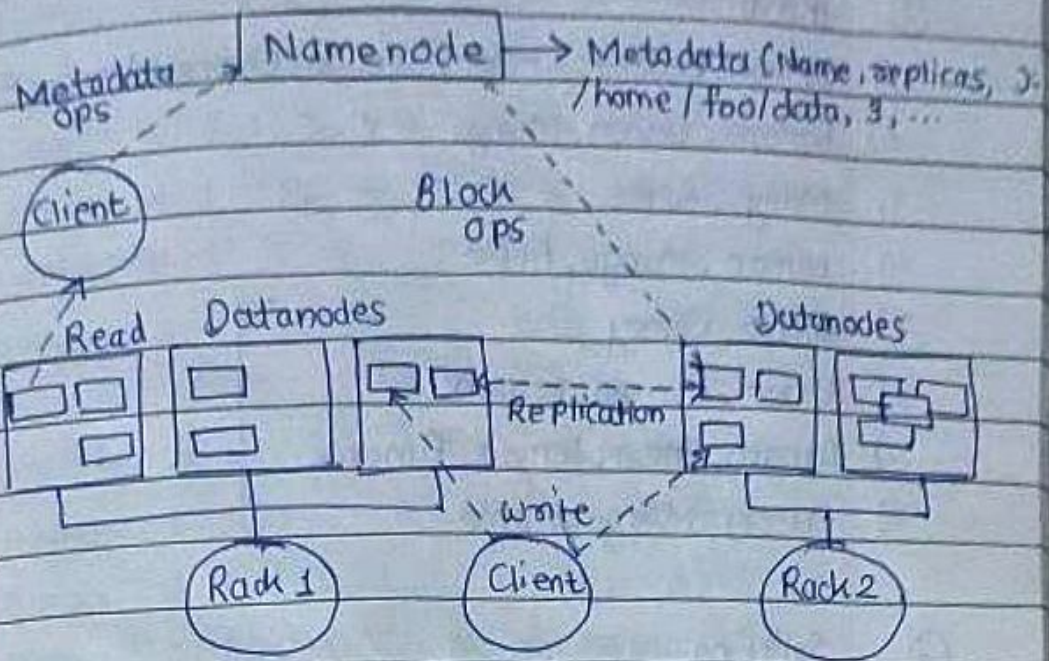 Namenode
Metadata (Name, replicas, ).
/home/foo/data, 3, ...
Metadata
ops
Client
Block
ops
Read
Datanodes
Datanodes
Replication
write
Rack 1
Client
Rack 2